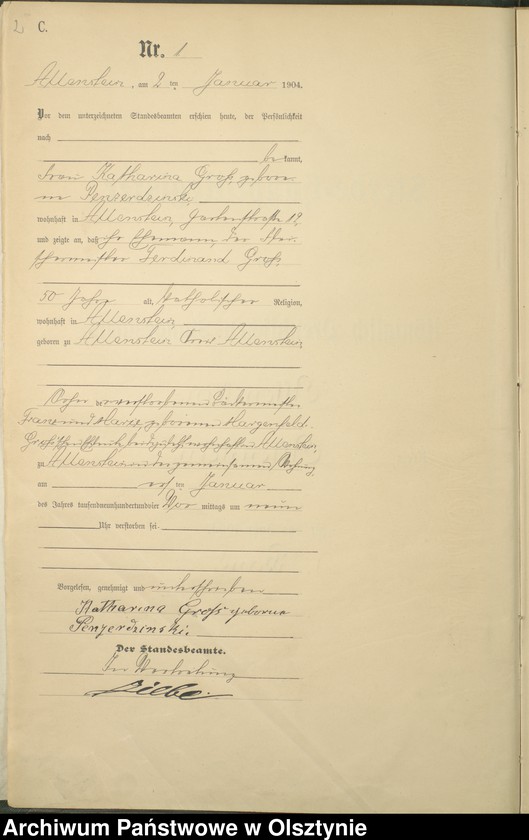 2 C.
Nr. 1
Allenstein, am 2 ten Januar 1904.
Vor dem unterzeichneten Standesbeamten erschien heute, der Persönlichkeit
nach
bekannt,
Frau Katharina Groß, gebore-
ne Penzerdzinski,
wohnhaft in Allenstein, Gartenstraße 19,
und zeigte an, daß ihr Ehemann, der
Ferdinand Groß,
50 Jahre alt, katholischer Religion,
wohnhaft in Allenstein,
geboren zu Allenstein Kreis Allenstein,
Sohn der verstorbenen
Franz und geborenen Hargenfeldt-
Groß'schen Eheleute, zuletzt wohnhaft in Allenstein,
zu Allenstein in der gemeinsamen Wohnung
am ten Januar
des Jahres tausendneunhundertundvier Vor mittags um neun
Uhr verstorben sei.
Vorgelesen, genehmigt und unterschrieben
Katharina Groß geborne
Penzerdzinski.
Der Standesbeamte.
In Vertretung
Archiwum Państwowe w Olsztynie